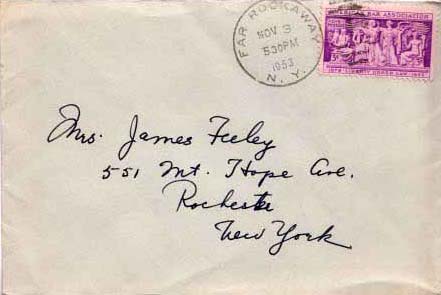 FAR ROCKAWAY
NOV 3
530PM
1953
N. Y.
BAR ASSOCIATION
Mrs. James Feeley
551 Mt. Hope Ave.
Rochester
New York